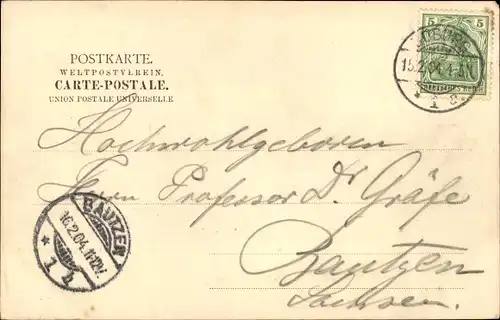 POSTKARTE.
WELTPOSTVEREIN.
CARTE-POSTALE.
UNION POSTALE UNIVERSELLE
5 5
15.2.04. 4-5N.
* 1 a
Hochwohlgeboren
Herrn Professor Dr Gräfe
Bautzen
Sachsen.
BAUTZEN
16.2.04. 11-12V.
* 1 b